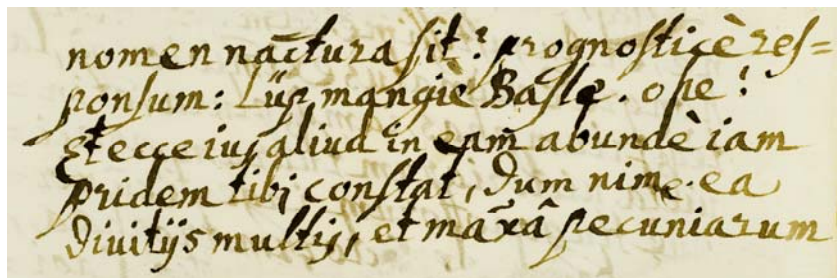 nomen nactura sit? prognosticè res=
ponsum: Lüp mangiè Basle. o pie!
Et ecce ius aliud in eam abundè iam
pridem tibi constat, dum nime. ea
divitijs multis, et maxâ pecuniarum